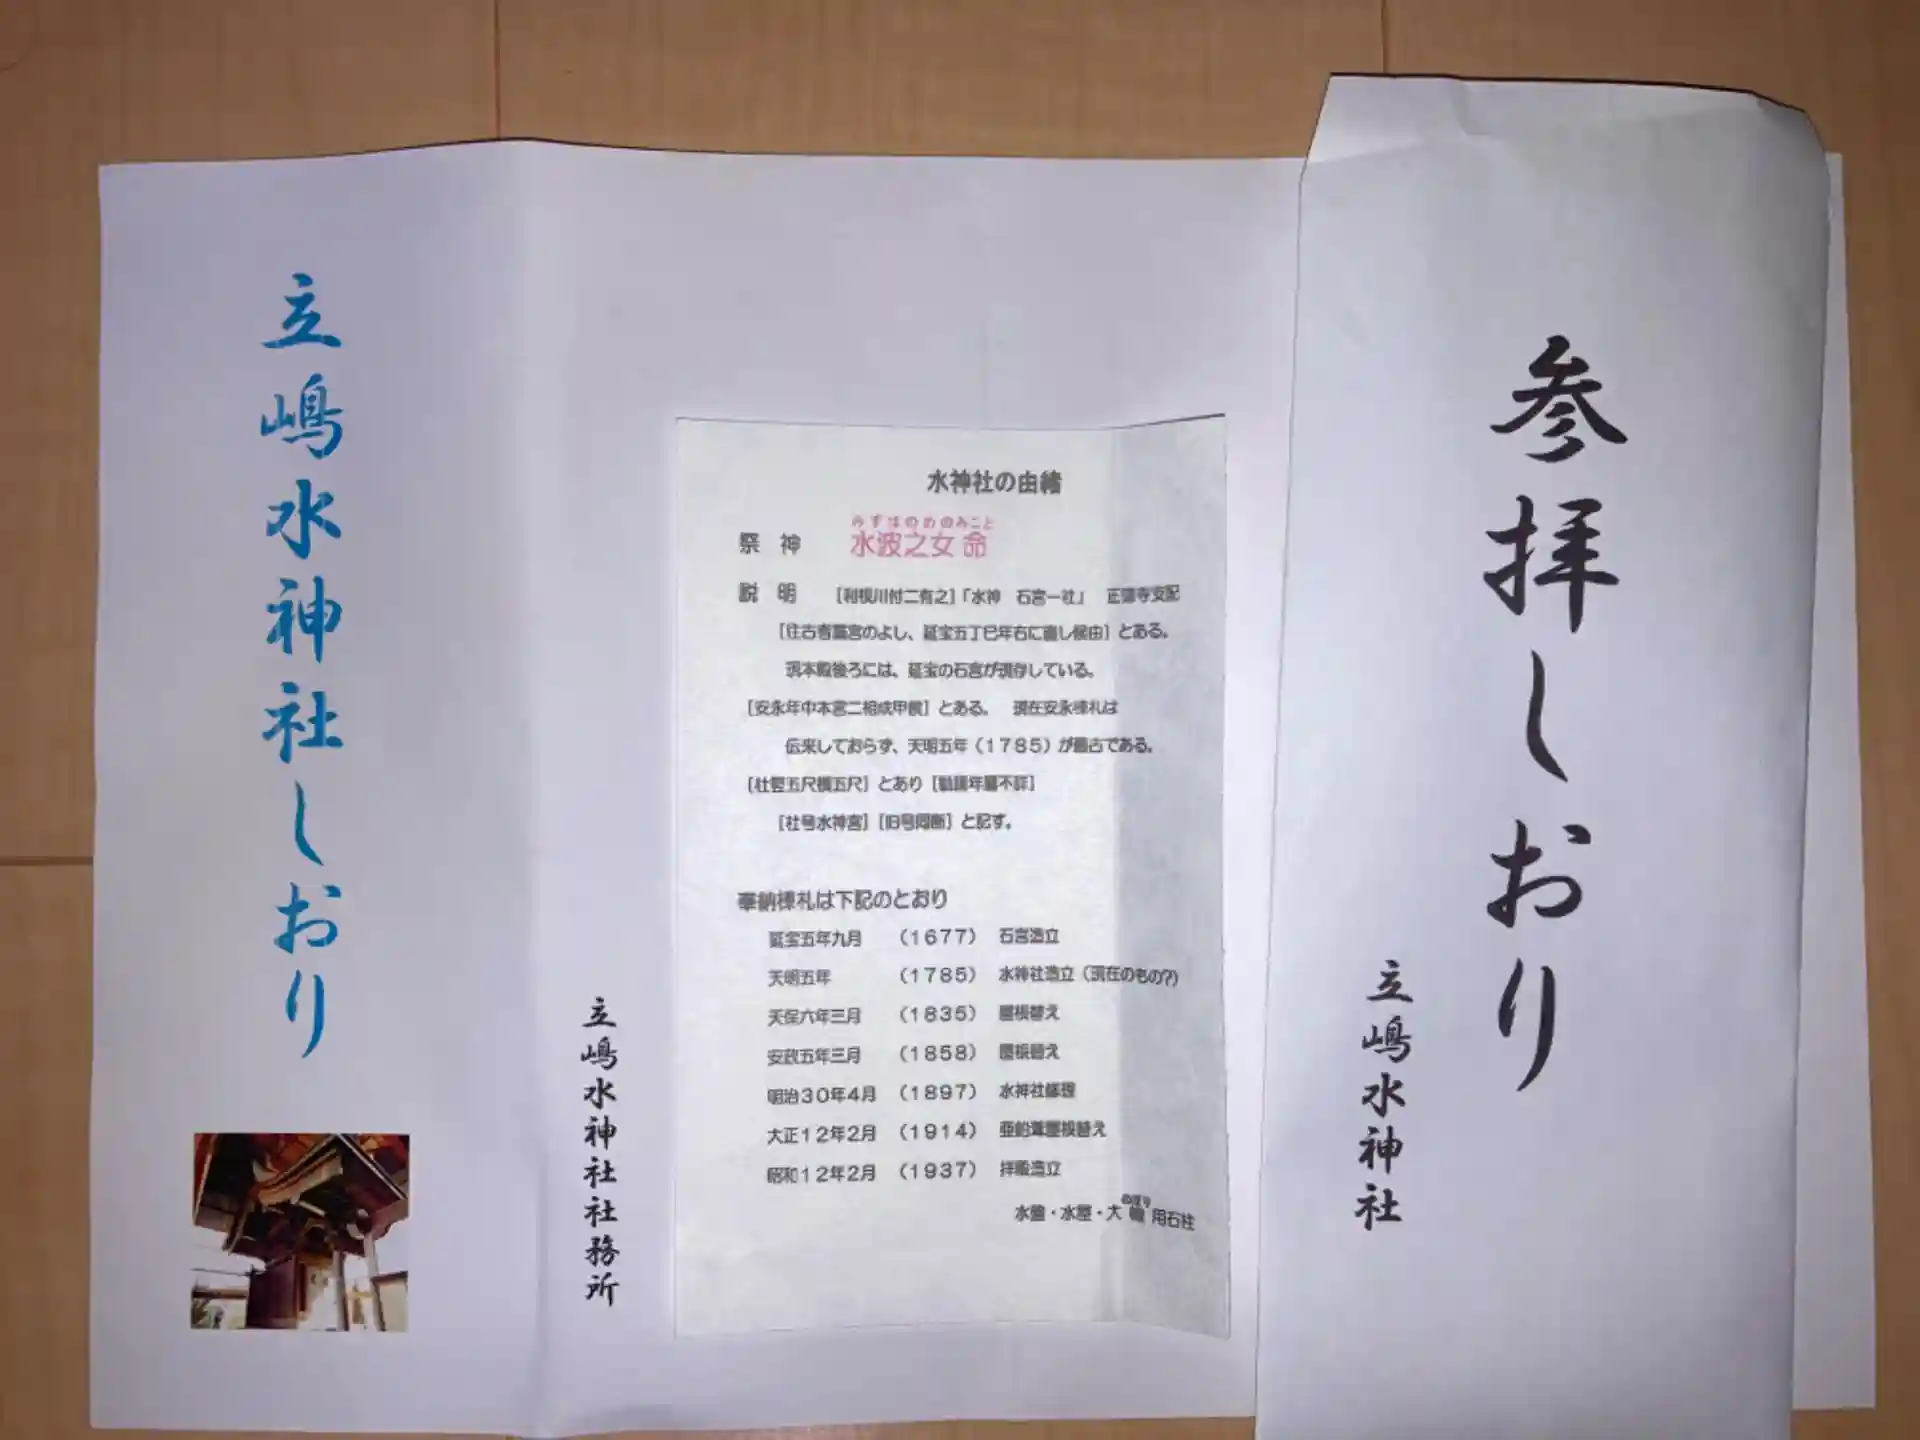 立嶋水神社しおり
立嶋水神社社務所
水神社の由緒
みずはのめのみこと
祭 神 水波之女 命
説 明 [利根川付二有之]「水神 石宮一社」 正彌寺支配
[往古者藁宮のよし、延宝五丁巳年右に直し候由]とある。
現本殿後ろには、延宝の石宮が現存している。
[安永年中本宮二相成申候]とある。 現在安永棟札は
伝来しておらず、天明五年（1785）が最古である。
[社竪五尺横五尺]とあり[勧請年暦不詳]
[社号水神宮][旧号同断]と記す。
奉納棟札は下記のとおり
延宝五年九月 （1677） 石宮造立
天明五年 （1785） 水神社造立（現在のもの?）
天保六年三月 （1835） 屋根替え
安政五年三月 （1858） 屋根替え
明治30年4月 （1897） 水神社修理
大正12年2月 （1914） 亜鉛葺屋根替え
昭和12年2月 （1937） 拝殿造立
のぼり
水盤・水屋・大幟用石柱
参拝しおり
立嶋水神社